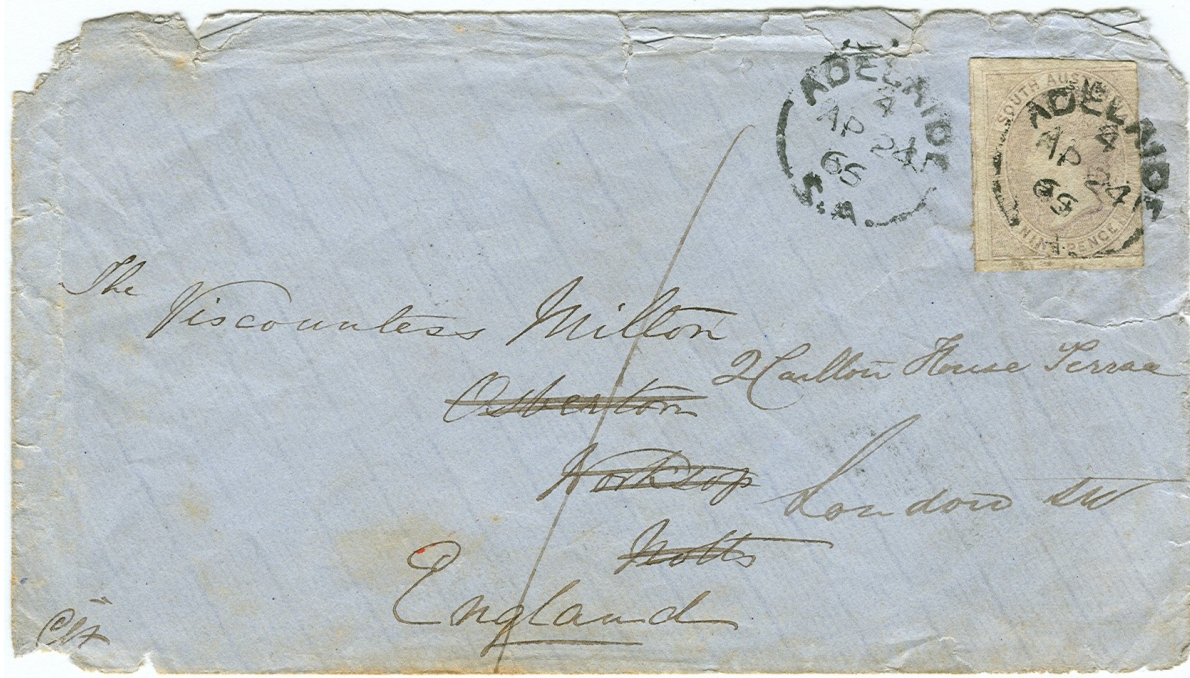 ADELAIDE
4
AP 24
65
S.A.
SOUTH AUSTRALIA
ADELAIDE
4
AP 24
65
NINE PENCE
The
Viscountess Milton
Osberton
2 Carlton House Terrace
Worksop
London SW
Notts
England